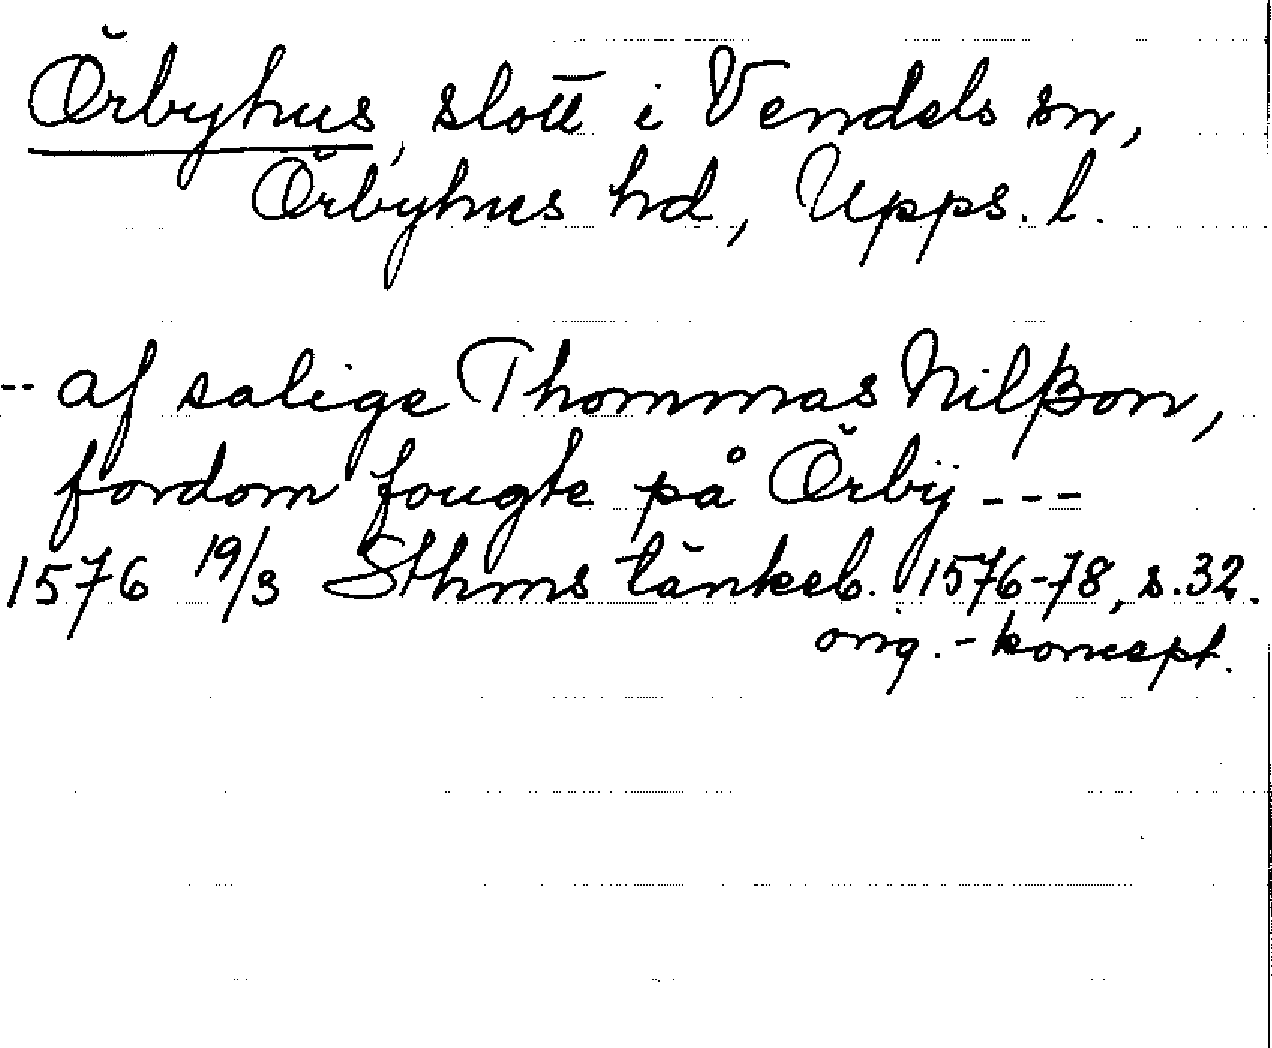 Örbyhus, slott i Vendels sn,
Örbyhus hd, Upps. l.
-- af salige Thommas Nilßon,
fordom fougte på Örbÿ ---
1576 19/3 Sthms tänkeb. 1576-78, s. 32.
orig.-koncept.